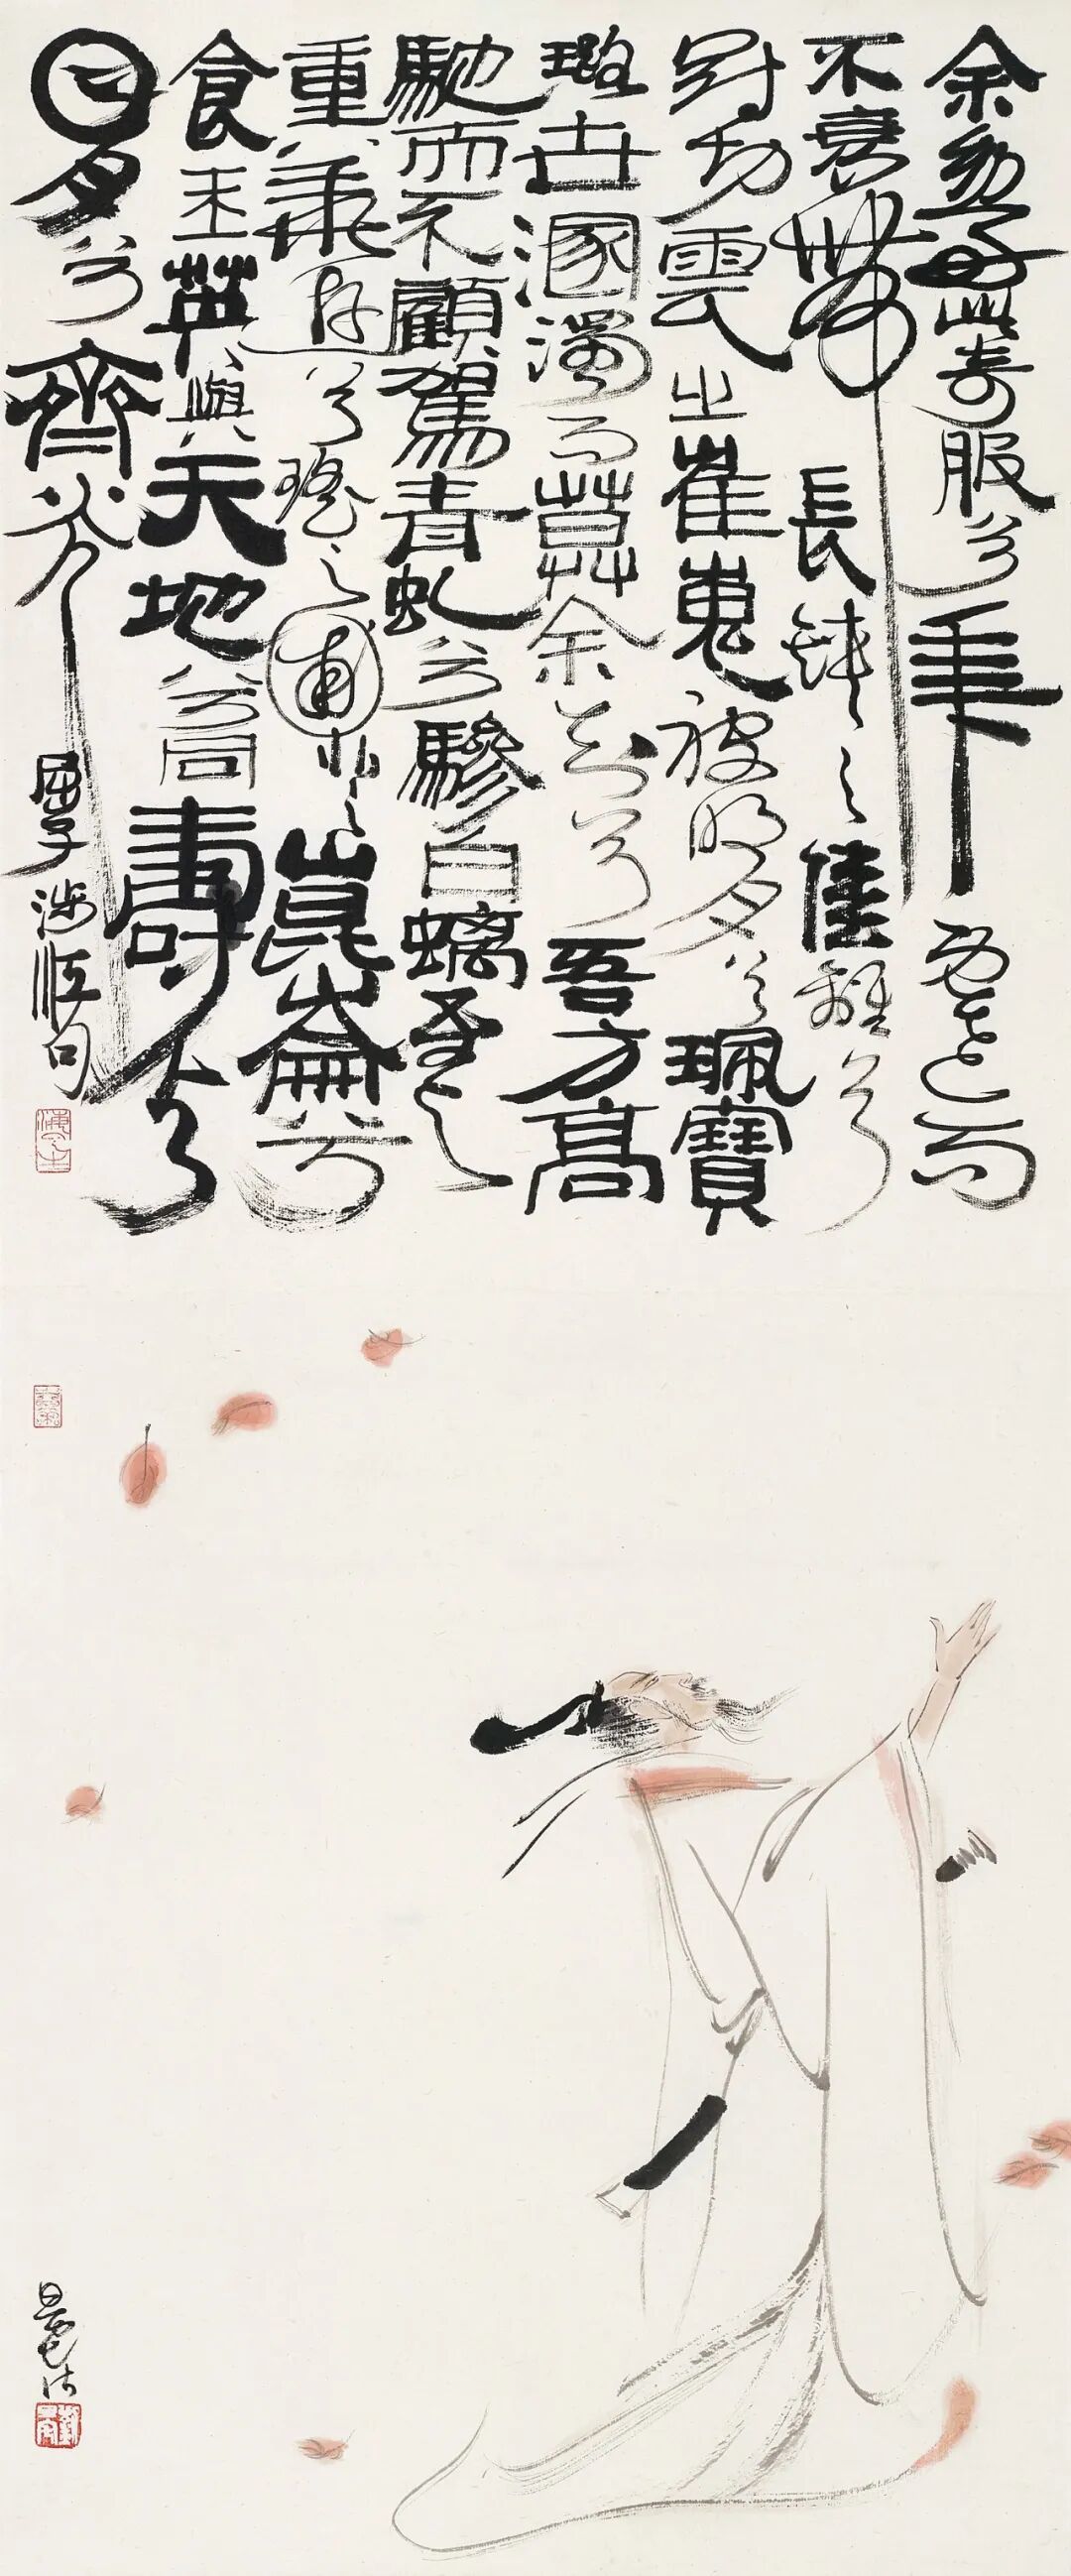 余幼好此奇服兮年既老而
不衰帶長鋏之陸離兮
冠切雲之崔嵬被明月兮珮寶
璐世溷濁而莫余知兮吾方高
馳而不顧駕青虬兮驂白螭吾與
重華遊兮瑤之圃登崑崙兮
食玉英與天地兮同壽兮
日月兮齊光
屈子涉江句